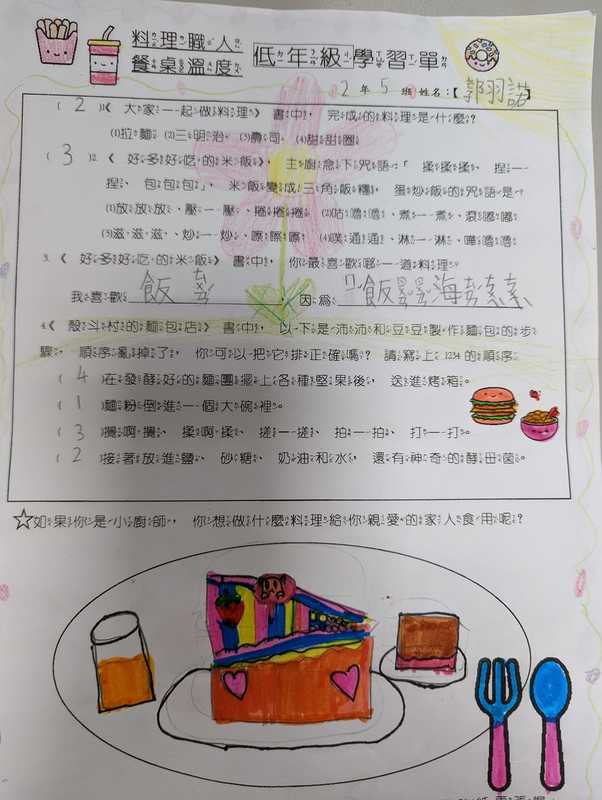 料理職人
餐桌溫度
低年級學習單
2年5班 姓名:【郭羽諾】
(2)1《大家一起做料理》書中,完成的料理是什麼?
(1)拉麵 (2)三明治 (3)壽司 (4)甜甜圈
(3)2《好多好吃的米飯》,主廚念下咒語「揉揉揉、捏一
捏、包包包」,米飯變成三角飯糰,蛋炒飯的咒語是
(1)放放放、壓一壓、捲捲捲 (2)咕嚕嚕、煮一煮、滾嘟嘟
(3)滋滋滋、炒一炒、嚓嚓嚓 (4)噗通通、淋一淋、嘩嚕嚕
3.《好多好吃的米飯》書中,你最喜歡哪一道料理。
我喜歡 飯 ,因為 飯 海
4.《殼斗村的麵包店》書中,以下是沛沛和豆豆製作麵包的步
驟,順序亂掉了,你可以把它排正確嗎?請寫上1234的順序
(4)在發酵好的麵團擺上各種堅果後,送進烤箱。
(1)麵粉倒進一個大碗裡。
(3)攪啊攪、揉啊揉、搓一搓、拍一拍、打一打。
(2)接著放進鹽、砂糖、奶油和水,還有神奇的酵母菌。
☆如果你是小廚師,你想做什麼料理給你親愛的家人食用呢?